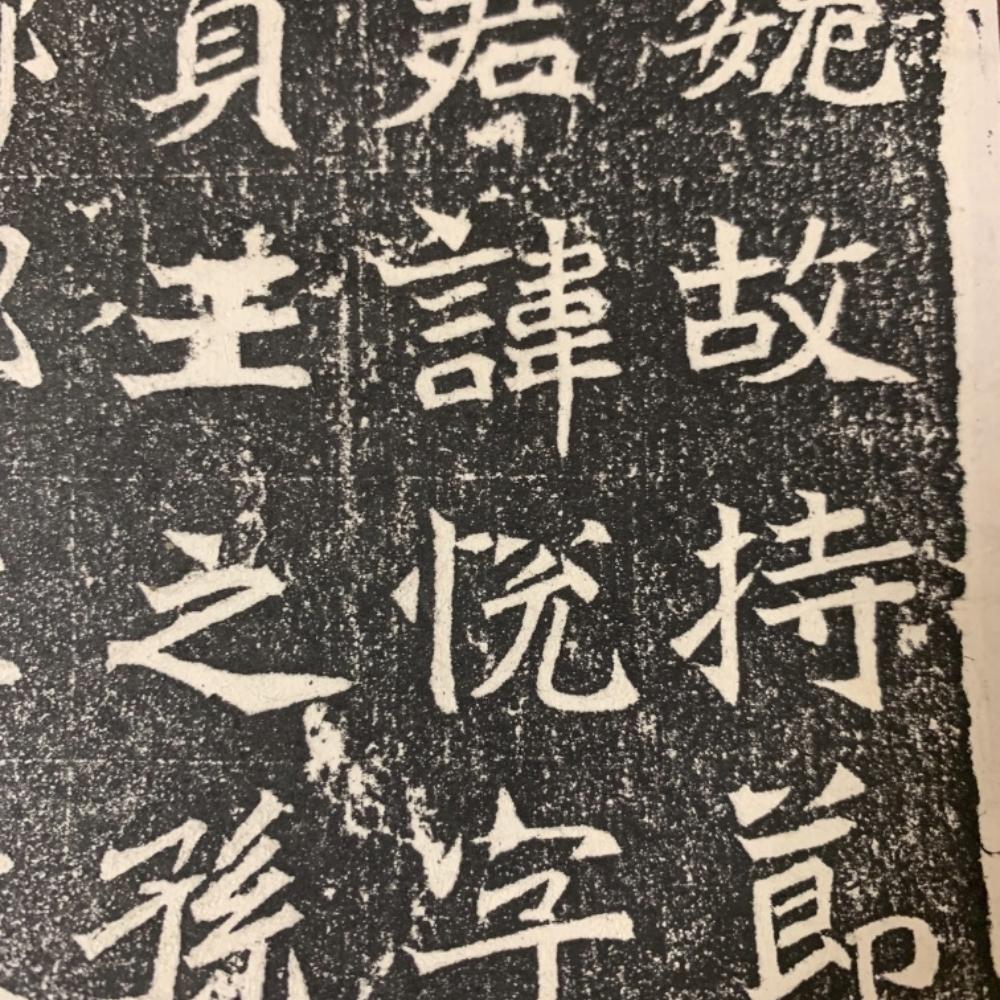 魏故持節
君諱悅字
王之孫